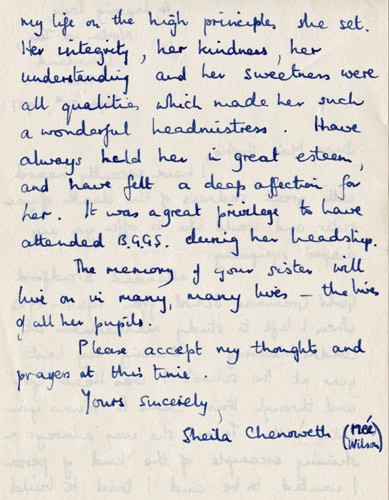 my life on the high principles she set.
Her integrity, her kindness, her
understanding and her sweetness were
all qualities which made her such
a wonderful headmistress. I have
always held her in great esteem,
and have felt a deep affection for
her. It was a great privilege to have
attended B.G.G.S. during her headship.
The memory of your sister will
live on in many, many lives – the lives
of all her pupils.
Please accept my thoughts and
prayers at this time.
Yours sincerely,
Sheila Chenoweth (née
Wilson)